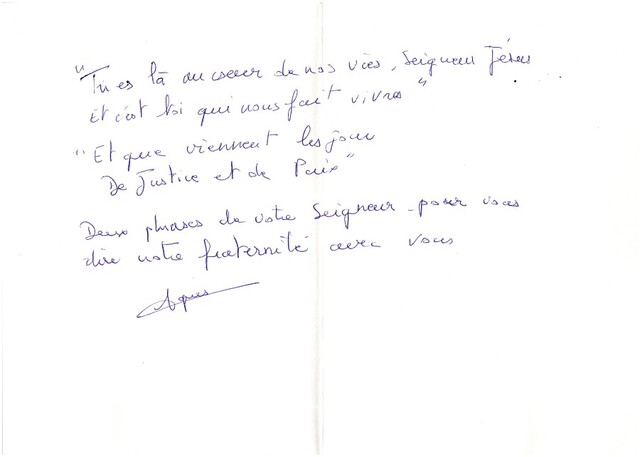 "Tu es là au coeur de nos vies, Seigneur Jésus
Et c'est toi qui nous fait vivre"
"Et que viennent les jours
De Justice et de Paix"
Deux phrases de votre Seigneur pour vous
dire notre fraternité avec vous
Agnès